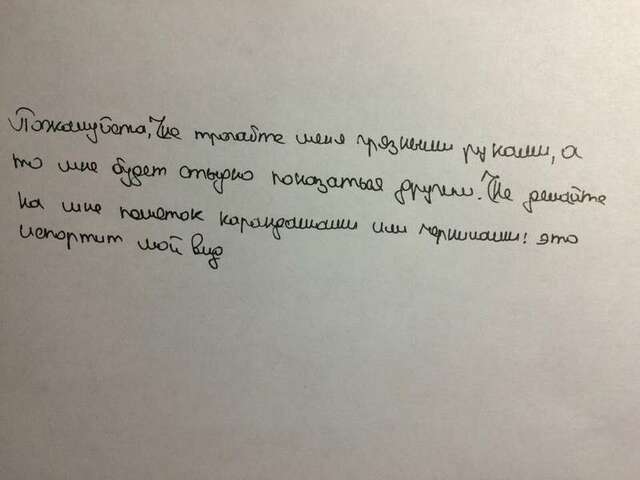 Пожалуйста, не трогайте меня грязными руками, а
то мне будет стыдно показаться другим. Не делайте
на мне пометок карандашами или чернилами: это
испортит мой вид